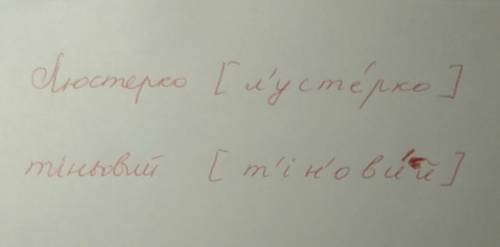 Люстерко [л'усте́рко]
тіньовий [т'ін'ови́й]